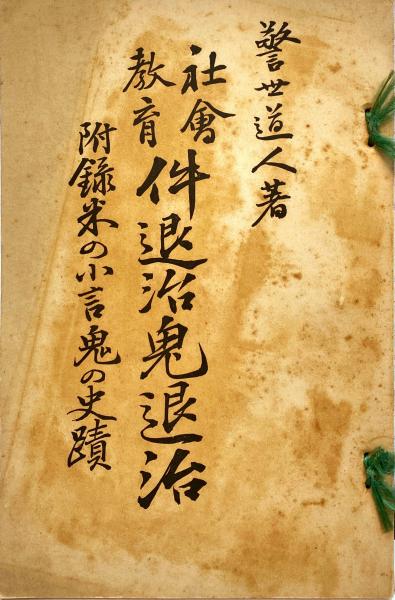 警世道人著
社會
教育
件退治鬼退治
附録米の小言鬼の史蹟